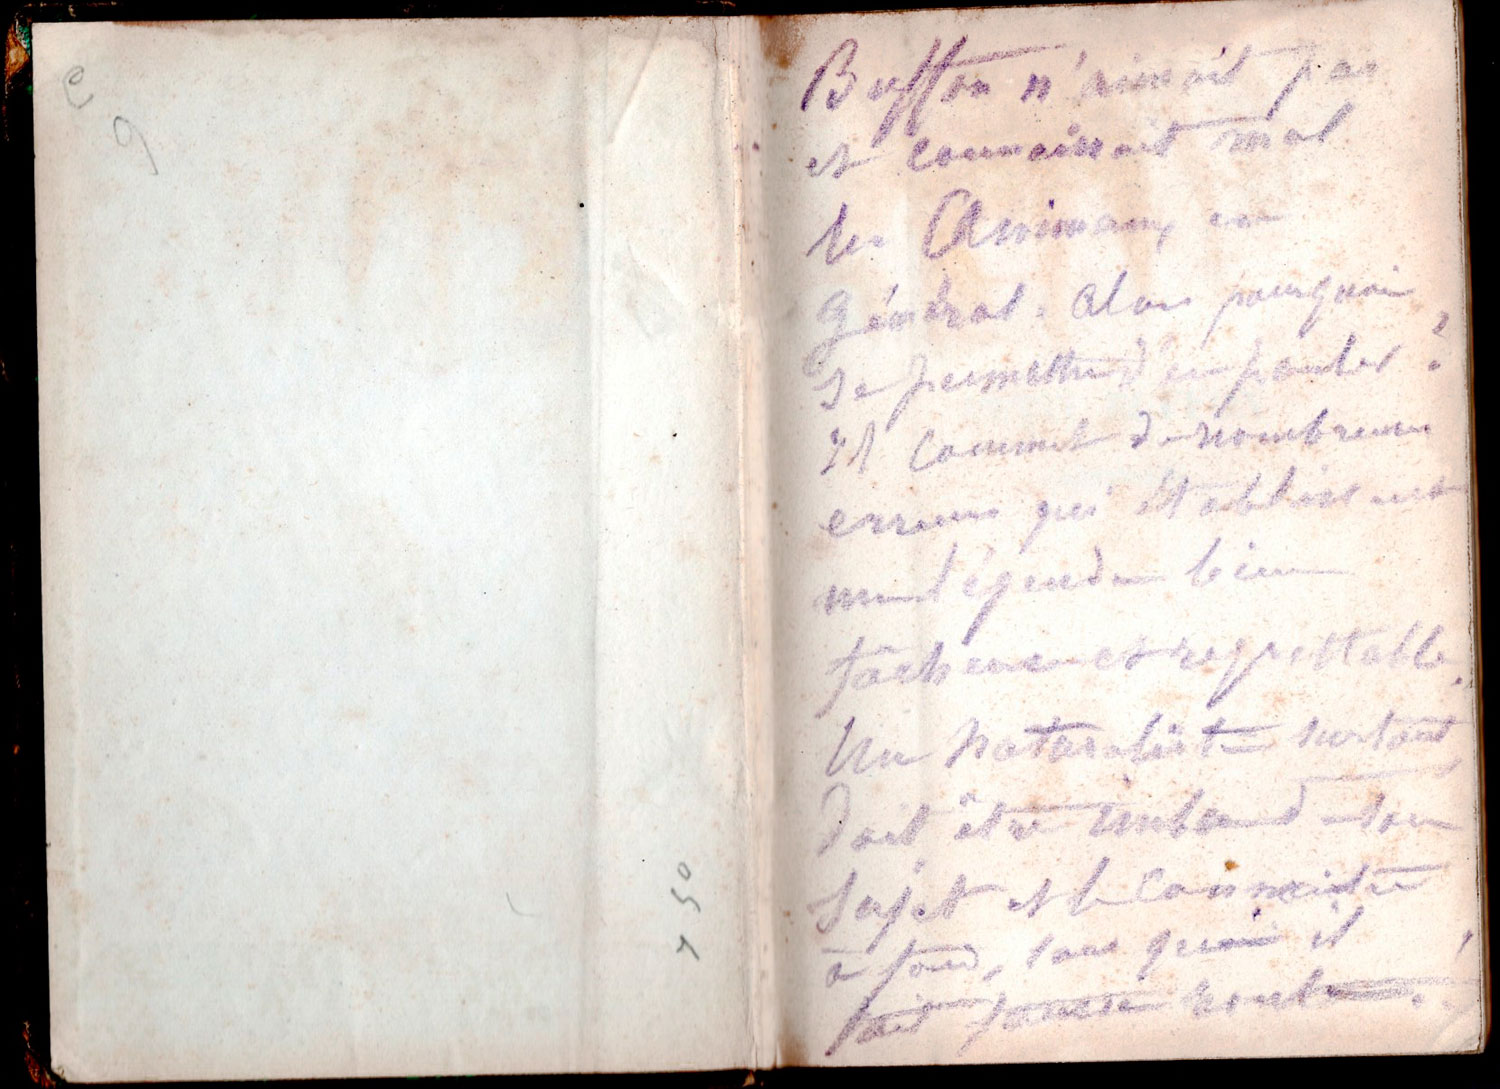 Buffon n'aimait pas
et connaissait mal
les Animaux en
général. Alors pourquoi
se permettre d'en parler ?
Il commet de nombreuses
erreurs qui établissent
une légende bien
fâcheuse et regrettable.
Un naturaliste surtout
doit être imbu de son
sujet et le connaître
à fond, sans quoi il
fait fausse route !
750